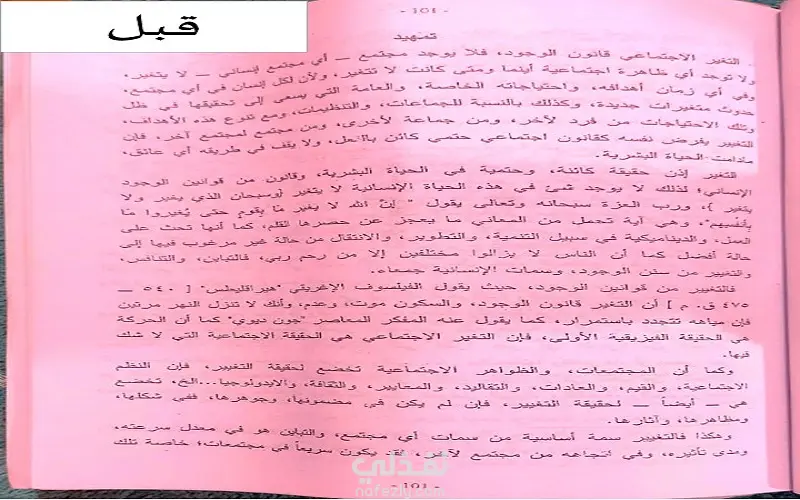 قبل
- 101 -
تمهيد
.. التغير الاجتماعي قانون الوجود، فلا يوجد مجتمع — أي مجتمع إنساني — لا يتغير،
ولا توجد أي ظاهرة اجتماعية أينما ومتى كانت لا تتغير، ولأن لكل إنسان في أي مجتمع،
وفي أي زمان أهدافه، واحتياجاته الخاصة، والعامة التي يسعى إلى تحقيقها في ظل
حدوث متغيرات جديدة، وكذلك بالنسبة للجماعات، والتنظيمات، ومع تنوع هذه الأهداف،
وتلك الاحتياجات من فرد لآخر، ومن جماعة لأخرى، ومن مجتمع لمجتمع آخر، فإن
التغيير يفرض نفسه كقانون اجتماعي حتمي كائن بالفعل، ولا يقف في طريقه أي عائق،
مادامت الحياة البشرية.
التغير إذن حقيقة كائنة، وحتمية في الحياة البشرية، وقانون من قوانين الوجود
الإنساني؛ لذلك لا يوجد شئ في هذه الحياة الإنسانية لا يتغير {وسبحان الذي يغير ولا
يتغير }، ورب العزة سبحانه وتعالى يقول " إنَّ الله لا يغير مَا بِقوم حتى يُغيروا مَا
بأنفسهم"، وهي آية تحمل من المعاني ما يعجز عن حصرها القلم، كما أنها تحث على
العمل، والديناميكية في سبيل التنمية، والتطوير، والانتقال من حالة غير مرغوب فيها إلى
حالة أفضل كما أن الناس لا يزالوا مختلفين إلا من رحم ربي، فالتباين، والتنافس،
والتغيير من سنن الوجود، وسمات الإنسانية جمعاء.
فالتغيير من قوانين الوجود، حيث يقول الفيلسوف الإغريقي "هيراقليطس" [ ٥٤٠ —
٤٧٥ ق. م ] أن التغير قانون الوجود، والسكون موت، وعدم، وأنك لا تنزل النهر مرتين
فإن مياهه تتجدد باستمرار، كما يقول عنه المفكر المعاصر "جون ديوي" كما أن الحركة
هي الحقيقة الفيزيقية الأولى، فإن التغير الاجتماعي هي الحقيقة الاجتماعية التي لا شك
فيها.
وكما أن المجتمعات، والظواهر الاجتماعية تخضع لحقيقة التغيير، فإن النظم
الاجتماعية، والقيم، والعادات، والتقاليد، والمعايير، والثقافة، والايدولوجيا...الخ، تخضع
هي — أيضاً — لحقيقة التغيير، فإن لم يكن في مضمونها، وجوهرها، ففي شكلها،
ومظاهرها، وآثارها.
وهكذا فالتغيير سمة أساسية من سمات أي مجتمع، والتباين هو في معدل سرعته،
ومدى تأثيره، وفي اتجاهه من مجتمع لآخر، قد يكون سريعاً في مجتمعات؛ خاصة تلك
- 101 -
نفذلي
nafezly.com